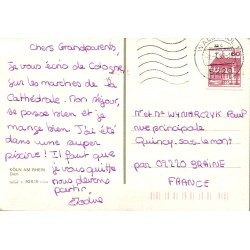 Chers Grandparents,
je vous écris de Cologne
sur les marches de la
Cathédrale. Mon séjour,
se passe bien et je
mange bien. J'ai été
dans une super
piscine! Il faut que
je vous quitte
nous devons
partir.
Elodie
KÖLN AM RHEIN
Dom
M et Mme WYNARCZYK Paul
rue principale
Quincy. sous. le mont
par 02220 BRAINE
FRANCE
60